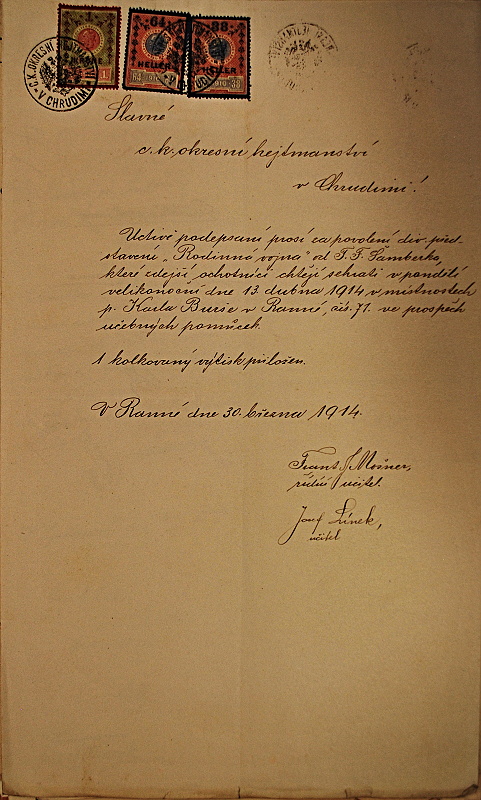 C.K. OKRESNÍ HEJTMANSTVÍ
V CHRUDIMI
64
88
HELLER
HELLER
1910
1910
Slavné
c.k. okresní hejtmanství
v Chrudimi!
Uctivě podepsaní prosí za povolení div. před-
stavení „Rodinná vojna" od F. F. Šamberka,
které zdejší ochotníci chtějí sehrati v pondělí
velikonoční dne 13 dubna 1914 v místnostech
p. Karla Bureše v Ranné, čís. 71. ve prospěch
učebných pomůcek.
1 kolkovaný výtisk přiložen.
V Ranné dne 30. března 1914.
Frant. Mošner,
řídící učitel.
Josef Línek,
učitel